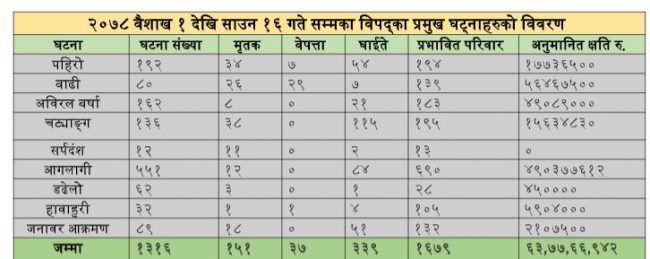 २०७८ बैशाख १ देखि साउन १६ गते सम्मका विपद्का प्रमुख घट्नाहरुको विवरण
घटना घटना संख्या मृतक वेपत्ता घाईते प्रभावित परिवार अनुमानित क्षति रु.
पहिरो १९२ ३४ ७ ५४ १९४ १७७३६५००
वाढी ८० २६ २९ ७ १३९ ५६४६७५००
अविरल वर्षा १६२ ८ ० २१ १८३ ४९०८९०००
चट्याङ्ग १३६ ३८ ० ११५ १९५ १५६३४८३०
सर्पदंश १२ ११ ० २ १३ ०
आगलागी ५५१ १२ ० ८४ ६९० ४९०३७७६१२
डढेलो ६२ ३ ० १ २८ ४५००००
हावाहुरी ३२ १ १ ४ १०५ ५९०४०००
जनावर आक्रमण ८९ १८ ० ५१ १३२ २१०७५००
जम्मा १३१६ १५१ ३७ ३३९ १६७९ ६३,७७,६६,९४२